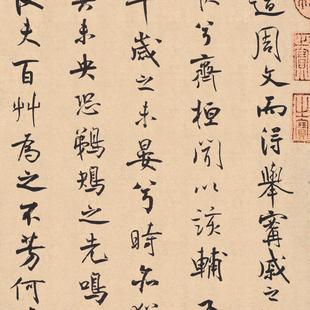 遭周文而得舉甯戚之
兮齊桓聞以該輔
年歲之未晏兮時亦猶
其未央恐鵜鴂之先鳴
夫百艸為之不芳何